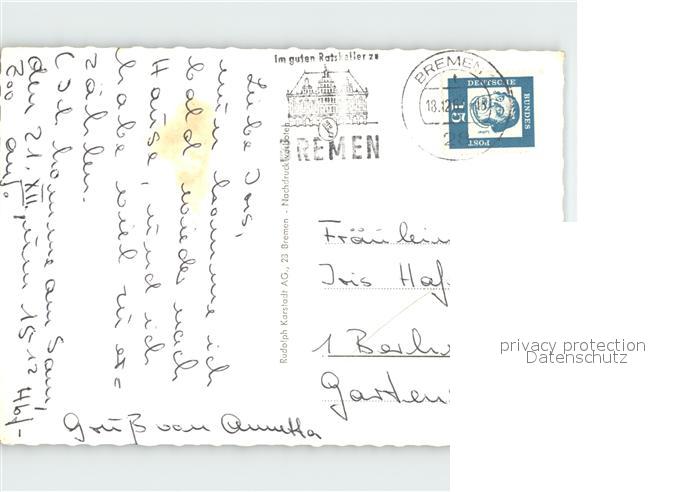 Liebe Iris,
nun komme ich
bald wieder nach
Hause, und ich
habe viel zu er=
zählen.
Ich komme am Sam.
den 21. XII. zum 15 12 Hbf-
Zoo an.
Gruß von Annetta
Rudolph Karstadt AG., 23 Bremen - Nachdruck verboten
Im guten Ratskeller zu
BREMEN
BREMEN
18.12.6
DEUTSCHE
BUNDES
POST
15
Fräulein
Iris Haf
1 Berlin
Garten
privacy protection
Datenschutz